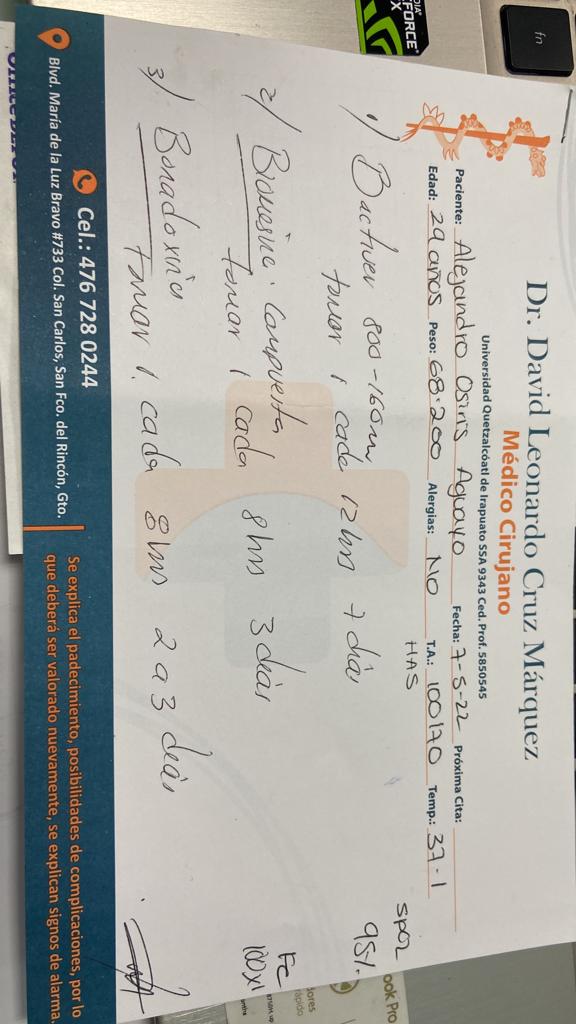 Dr. David Leonardo Cruz Márquez
Médico Cirujano
Universidad Quetzalcóatl de Irapuato SSA 9343 Ced. Prof. 5850545
Paciente: Alejandro Osiris Aguayo Fecha: 7-5-22 Próxima Cita:
Edad: 29 años Peso: 68.200 Alergias: No T.A.: 100/70 Temp.: 37.1
HAS
SPO2
95%
FC
100x1
1) Bactiver 800-160mg
tomar 1 cada 12 hrs 7 días
2) Bionesina compuesta
tomar 1 cada 8 hrs 3 días
3) Bonadoxina
tomar 1 cada 8 hrs 2 a 3 días
Cel.: 476 728 0244
Blvd. María de la Luz Bravo #733 Col. San Carlos, San Fco. del Rincón, Gto.
Se explica el padecimiento, posibilidades de complicaciones, por lo
que deberá ser valorado nuevamente, se explican signos de alarma.
fn
FORCE
X
ook Pro